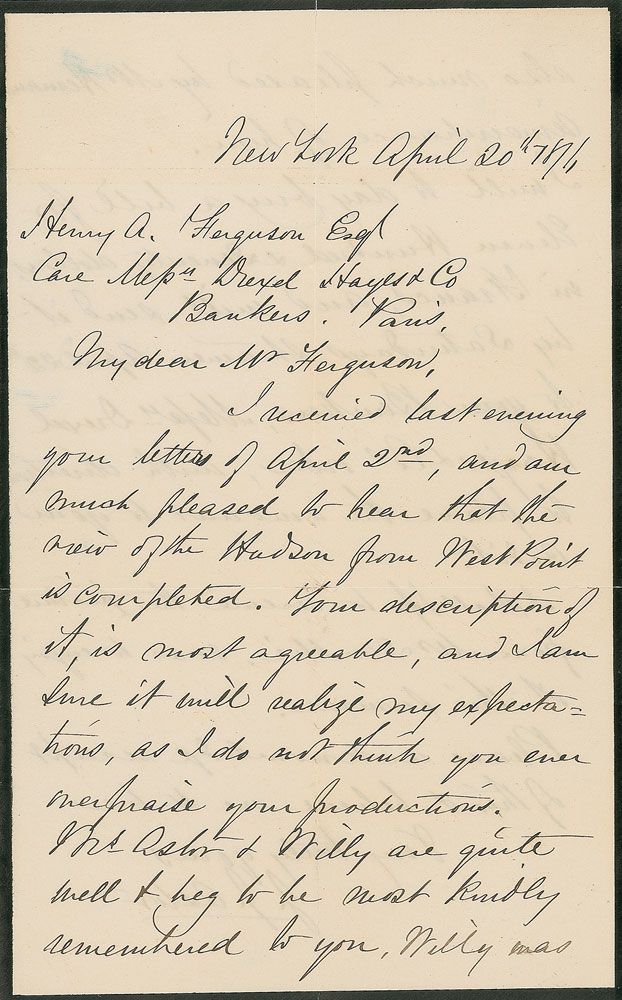 New York April 20th 1876
Henry A. Ferguson Esqr
Care Messrs Drexel Hayes & Co
Bankers. Paris.
My dear Mr Ferguson,
I received last evening
your letters of April 2nd, and am
much pleased to hear that the
view of the Hudson from West Point
is completed. Your description of
it, is most agreeable, and I am
sure it will realize my expecta=
tions, as I do not think you ever
overpraise your productions.
Mrs Astor & Willy are quite
well & beg to be most kindly
remembered to you, Willy was